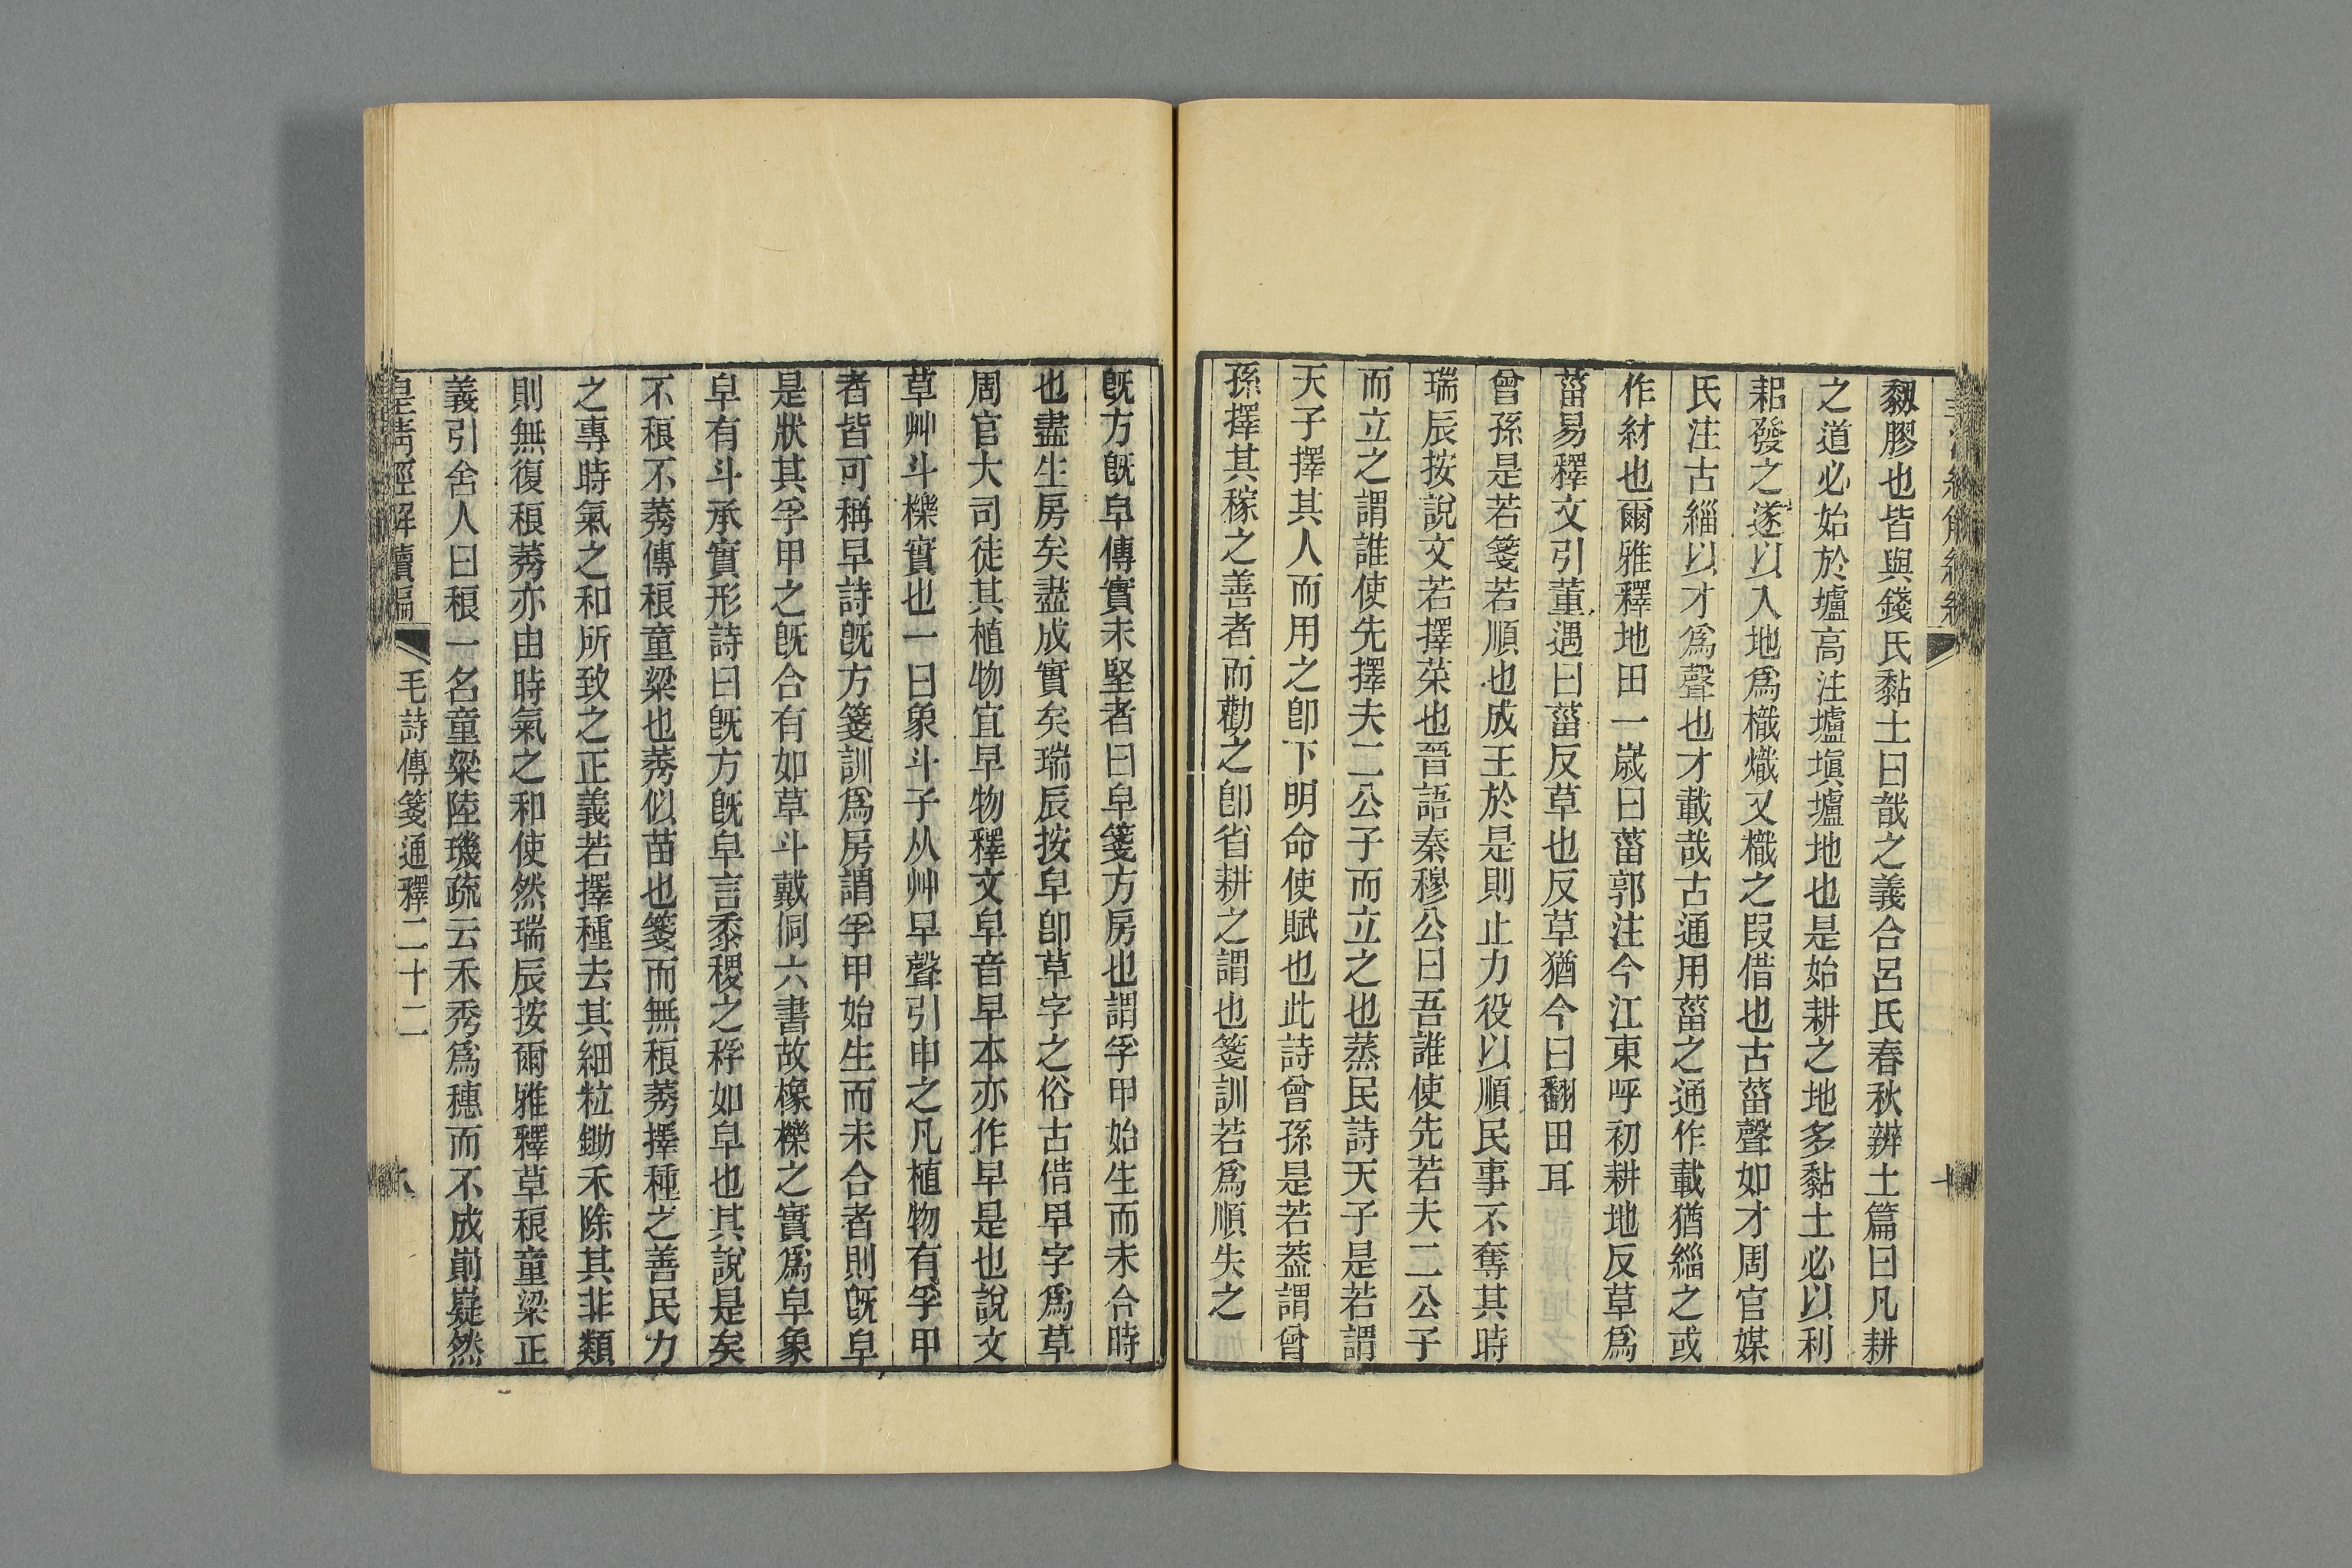 㓞膠也皆與錢氏黏土曰哉之義合呂氏春秋辨土篇曰凡耕
之道必始於壚高注壚塡壚地也是始耕之地多黏土必以利
耜發之遂以入地爲樴熾又樴之叚借也古菑聲如才周官媒
氏注古緇以才爲聲也才載哉古通用菑之通作載猶緇之或
作材也爾雅釋地田一歲曰菑郭注今江東呼初耕地反草爲
菑易釋文引董遇曰菑反草也反草猶今曰翻田耳
曾孫是若箋若順也成王於是則止力役以順民事不奪其時
瑞辰按說文若擇菜也晉語秦穆公曰吾誰使先若夫二公子
而立之謂誰使先擇夫二公子而立之也蒸民詩天子是若謂
天子擇其人而用之卽下明命使賦也此詩曾孫是若葢謂曾
孫擇其稼之善者而勸之卽省耕之謂也箋訓若爲順失之
旣方旣皁傳實未堅者曰皁箋方房也謂孚甲始生而未合時
也盡生房矣盡成實矣瑞辰按皁卽草字之俗古借早字爲草
周官大司徒其植物宜早物釋文皁音早本亦作早是也說文
草艸斗櫟實也一曰象斗子从艸早聲引申之凡植物有孚甲
者皆可稱早詩旣方箋訓爲房謂孚甲始生而未合者則旣皁
是狀其孚甲之旣合有如草斗戴侗六書故橡櫟之實爲皁象
皁有斗承實形詩曰旣方旣皁言黍稷之稃如皁也其說是矣
不稂不莠傳稂童粱也莠似苗也箋而無稂莠擇種之善民力
之專時氣之和所致之正義若擇種去其細粒鋤禾除其非類
則無復稂莠亦由時氣之和使然瑞辰按爾雅釋草稂童粱正
義引舍人曰稂一名童粱陸璣疏云禾秀爲穗而不成崱嶷然
皇淸經解續編 毛詩傳箋通釋二十二